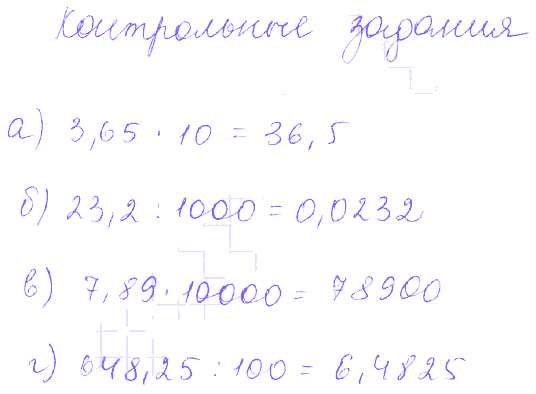 Контрольные задания
а) 3,65 · 10 = 36,5
б) 23,2 : 1000 = 0,0232
в) 7,89 · 10000 = 78900
г) 648,25 : 100 = 6,4825